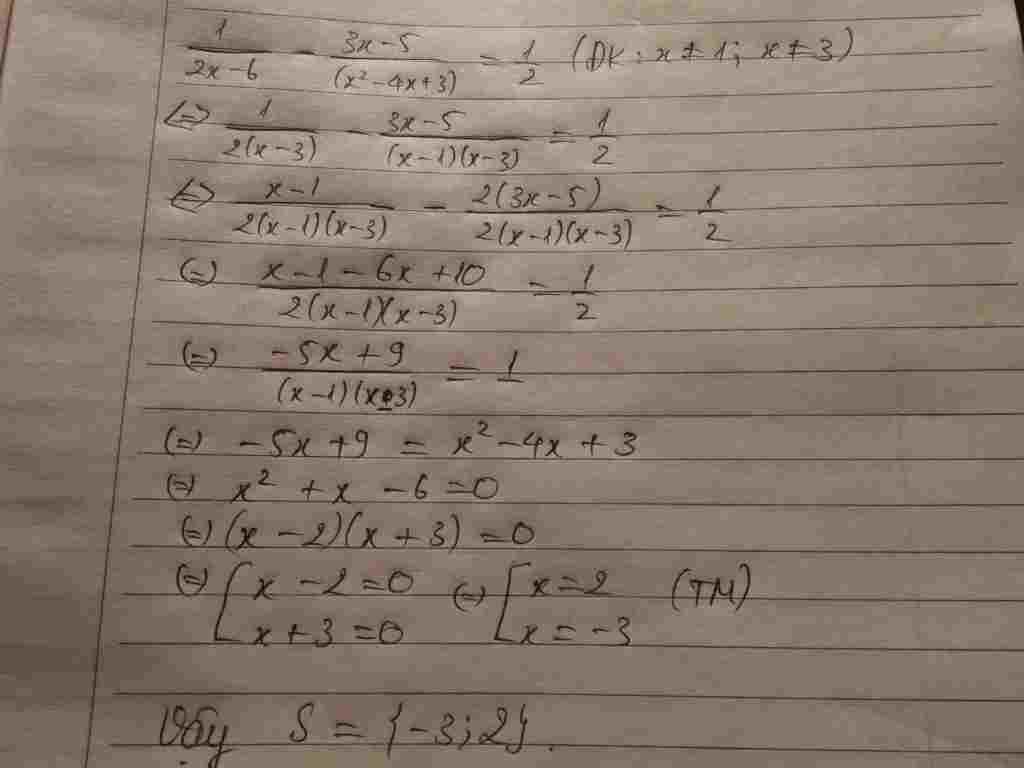 1/(2x-6) - (3x-5)/(x²-4x+3) = 1/2 (DK: x ≠ 1; x ≠ 3)
<=> 1/(2(x-3)) - (3x-5)/((x-1)(x-3)) = 1/2
<=> (x-1)/(2(x-1)(x-3)) - (2(3x-5))/(2(x-1)(x-3)) = 1/2
(=) (x-1-6x+10)/(2(x-1)(x-3)) = 1/2
(=) (-5x+9)/((x-1)(x-3)) = 1
(=) -5x+9 = x²-4x+3
(=) x²+x-6=0
(=) (x-2)(x+3)=0
(=) [x-2=0 (=) [x=2 (TM)
[x+3=0 [x=-3
Vậy S = {-3;2}.